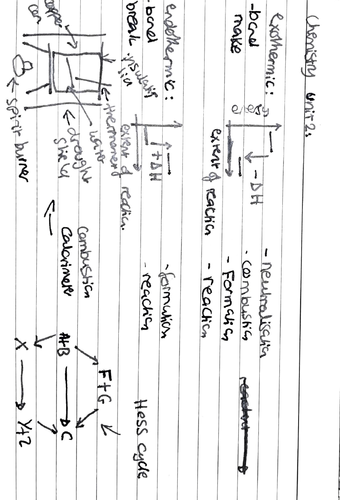 Chemistry unit 2:
exothermic:
-bond
make
-ΔH
extent of reaction
- neutralisation
- combustion
- Formation
- reaction
endothermic:
-bond
break
+ΔH
extent of reaction
- formation
- reaction
Hess cycle
lid
thermometer
water
copper
can
draught
shield
spirit burner
combustion
calorimeter
F+G
A+B → C
X → Y+Z